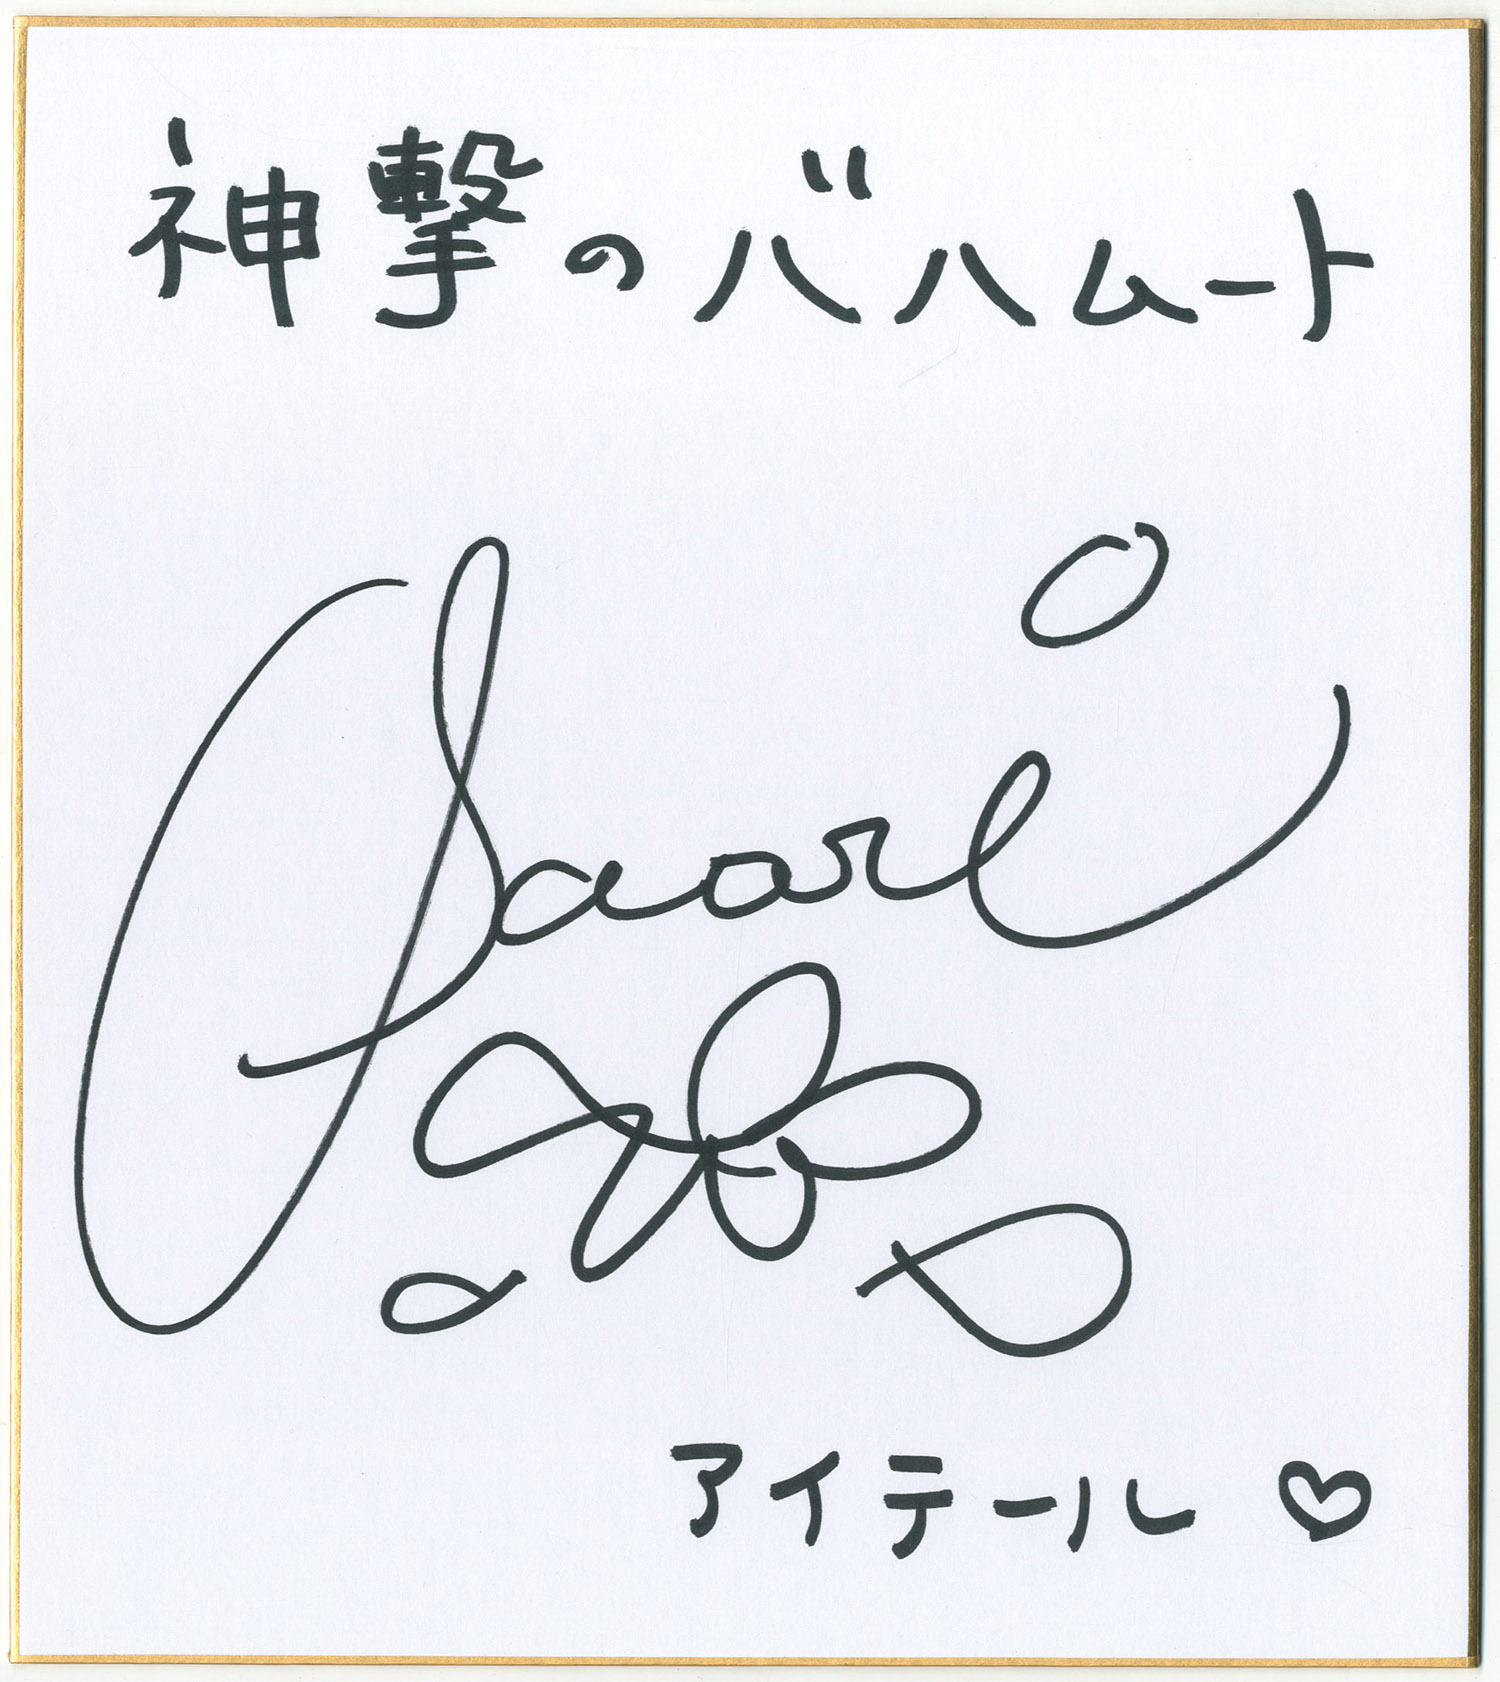 神撃のバハムート
Saori
アイテール♡